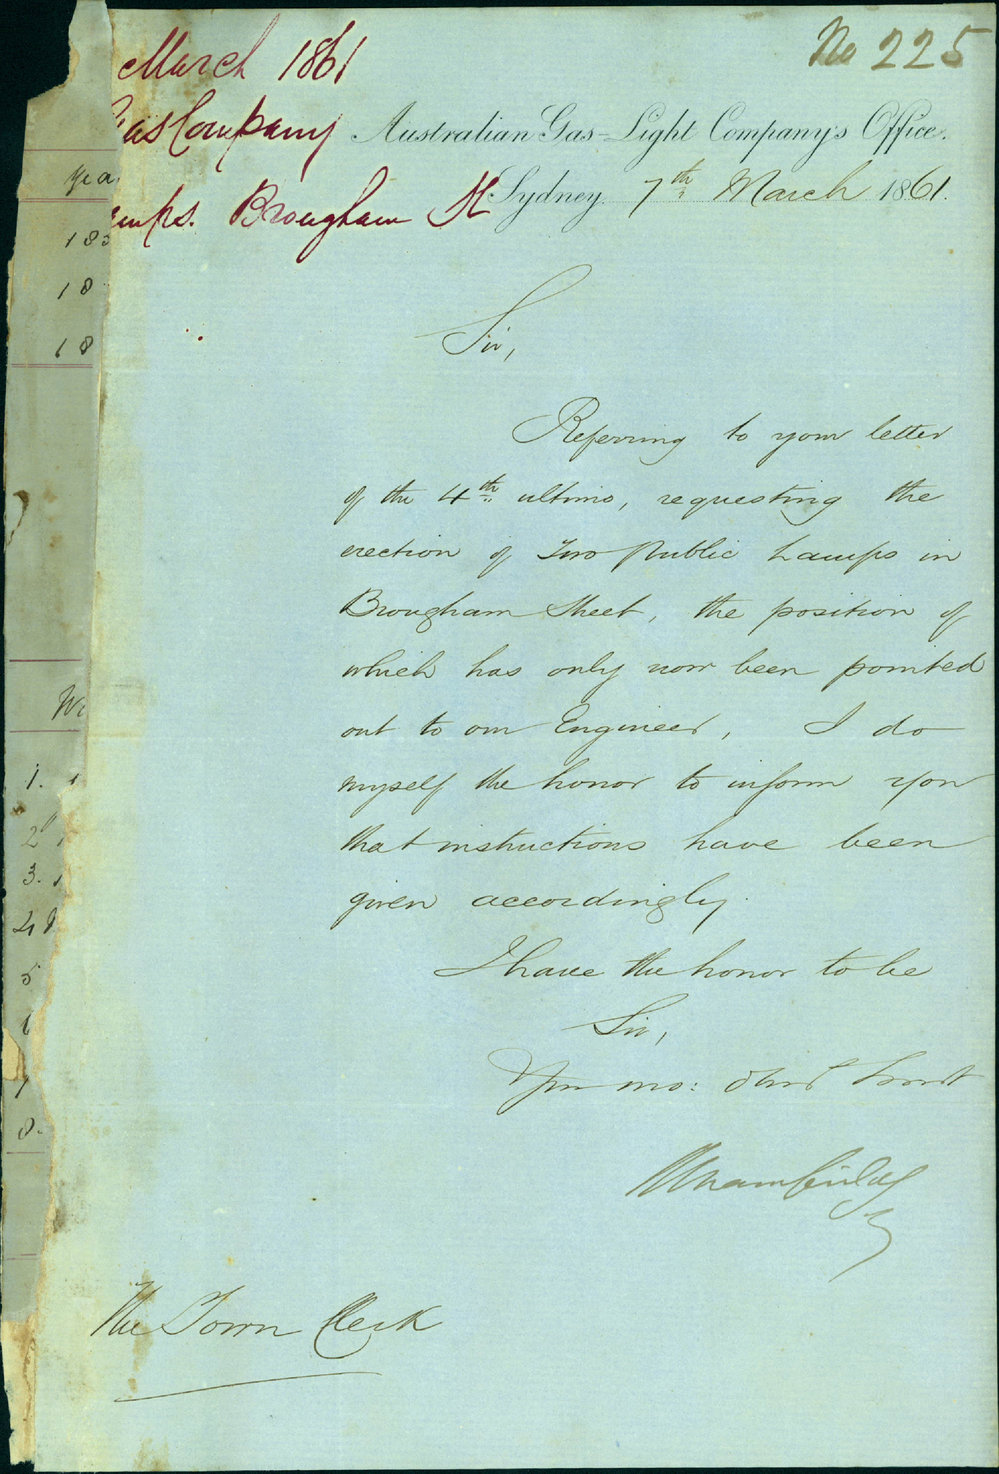 March 1861
No 225
Gas Company
Australian Gas-Light Company's Office.
Lamps. Brougham St
Sydney. 7th March 1861.
Sir,
Referring to your letter
of the 4th ultimo, requesting the
erection of Two Public Lamps in
Brougham Street, the position of
which has only now been pointed
out to our Engineer, I do
myself the honor to inform you
that instructions have been
given accordingly.
I have the honor to be
Sir,
Your mo: Obed Servt
The Town Clerk
yea
185
18
18
1.
2
3.
4
5
8.